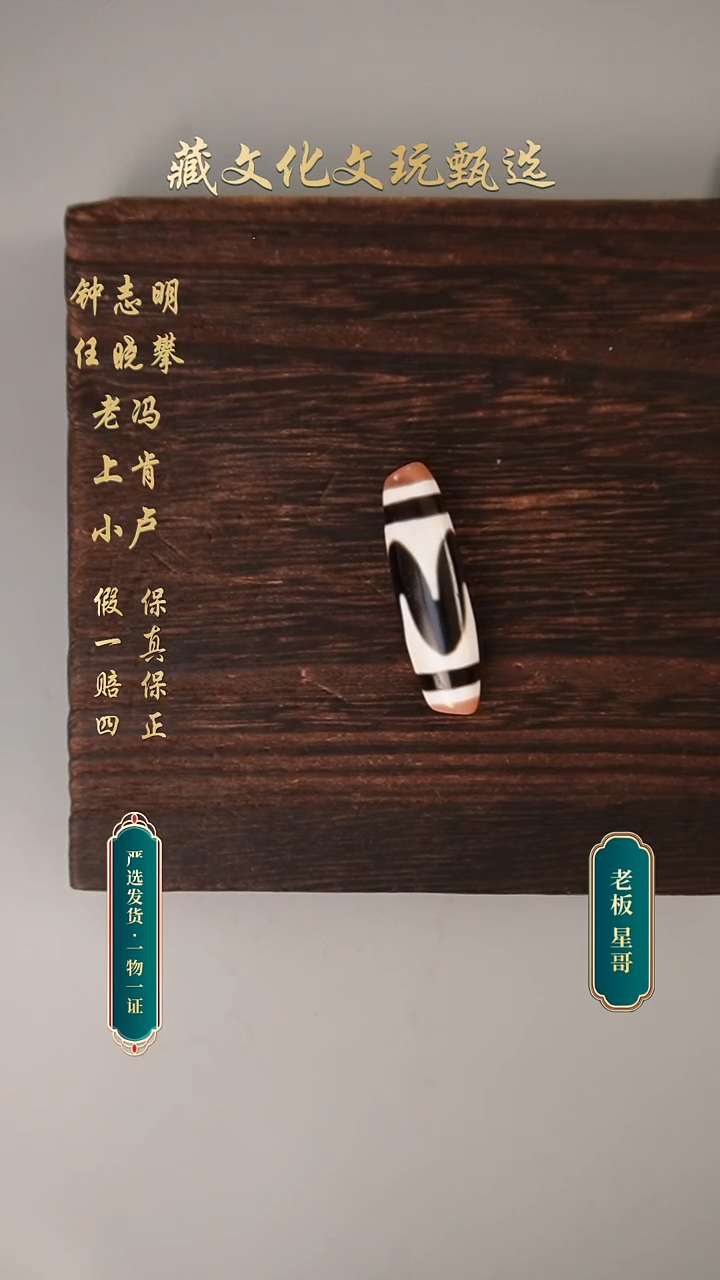 藏文化文玩甄选
钟志明
任晓攀
老冯
上肯
小卢
保真保正
假一赔四
严选发货·一物一证
老板 星哥